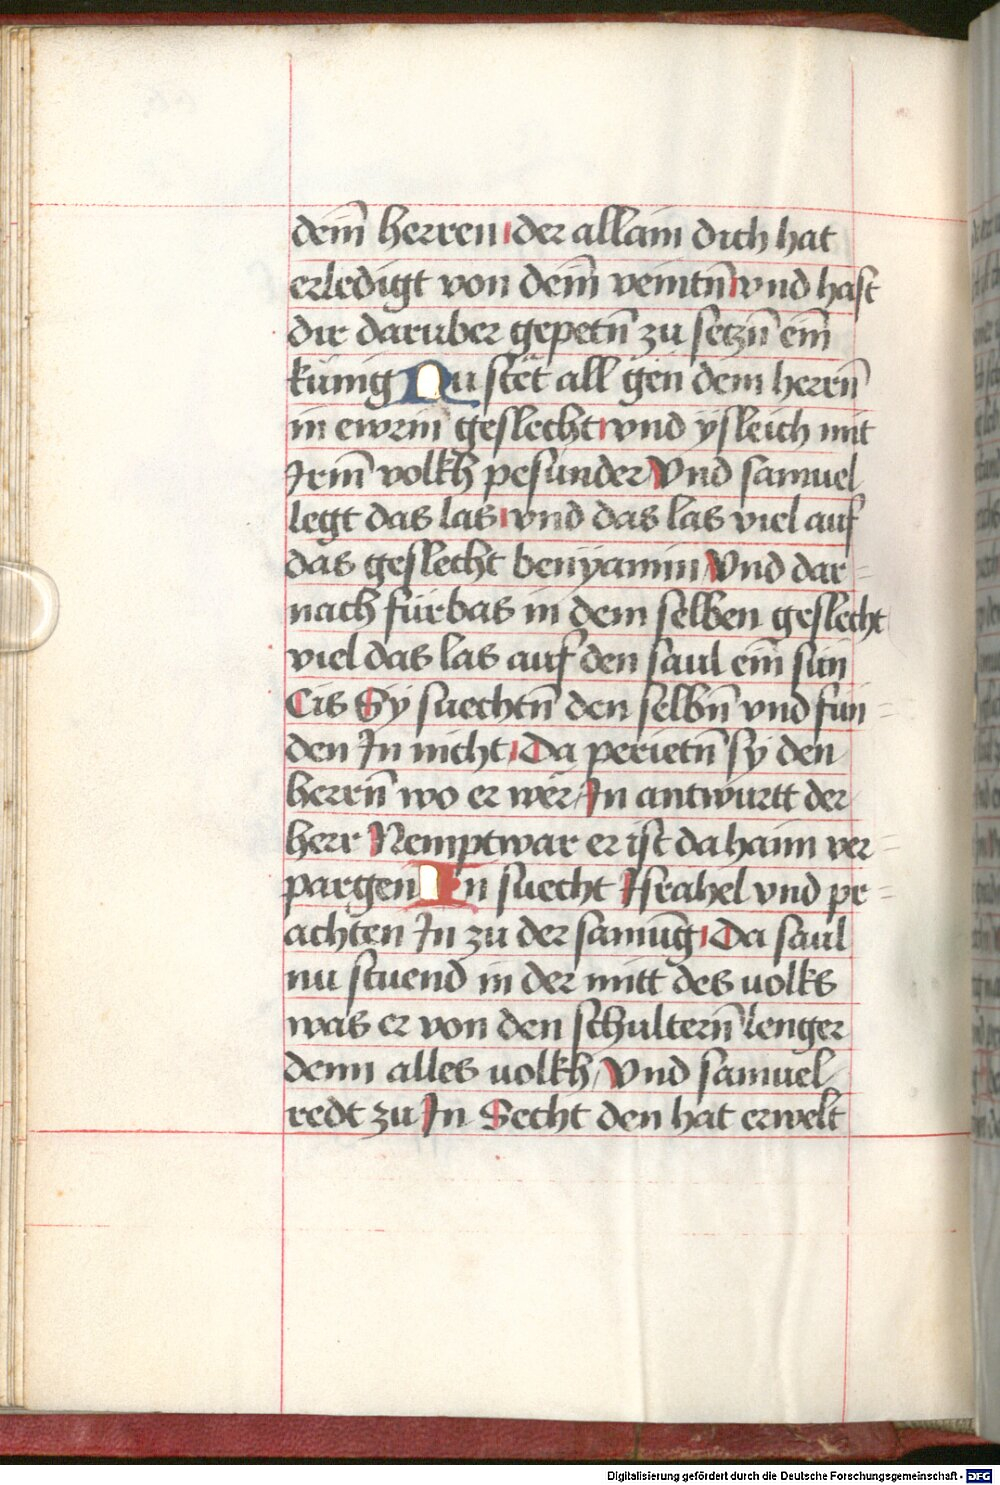 deim̄ herren der allain dich hat
erledigt von deim̄ veintn̄ vnd hast
dir daruber gepetn̄ zu setzn̄ eim̄
künig Nu stet all gen dem herrn̄
in ewrm geslecht vnd ÿsleich mit
Irm̄ volkh pesunder Vnd samuel
legt das las vnd das las viel auf
das geslecht benÿamin Vnd dar=
nach fürbas in dem selben geslecht
viel das las auf den saul eim̄ sun
Cis Sÿ suechtn̄ den selbn̄ vnd fun=
den In nicht Da perietn̄ sÿ den
herrn̄ wo er wer In antwurtt der
herr Nempt war er ist da haim ver=
pargen In suecht Israhel vnd pr=
achten In zu der samūg Da saul
nu stuend in der mitt des uolks
was er von den schultern̄ lenger
denn alles uolkh Vnd samuel
redt zu In Secht den hat erwelt
Digitalisierung gefördert durch die Deutsche Forschungsgemeinschaft - DFG